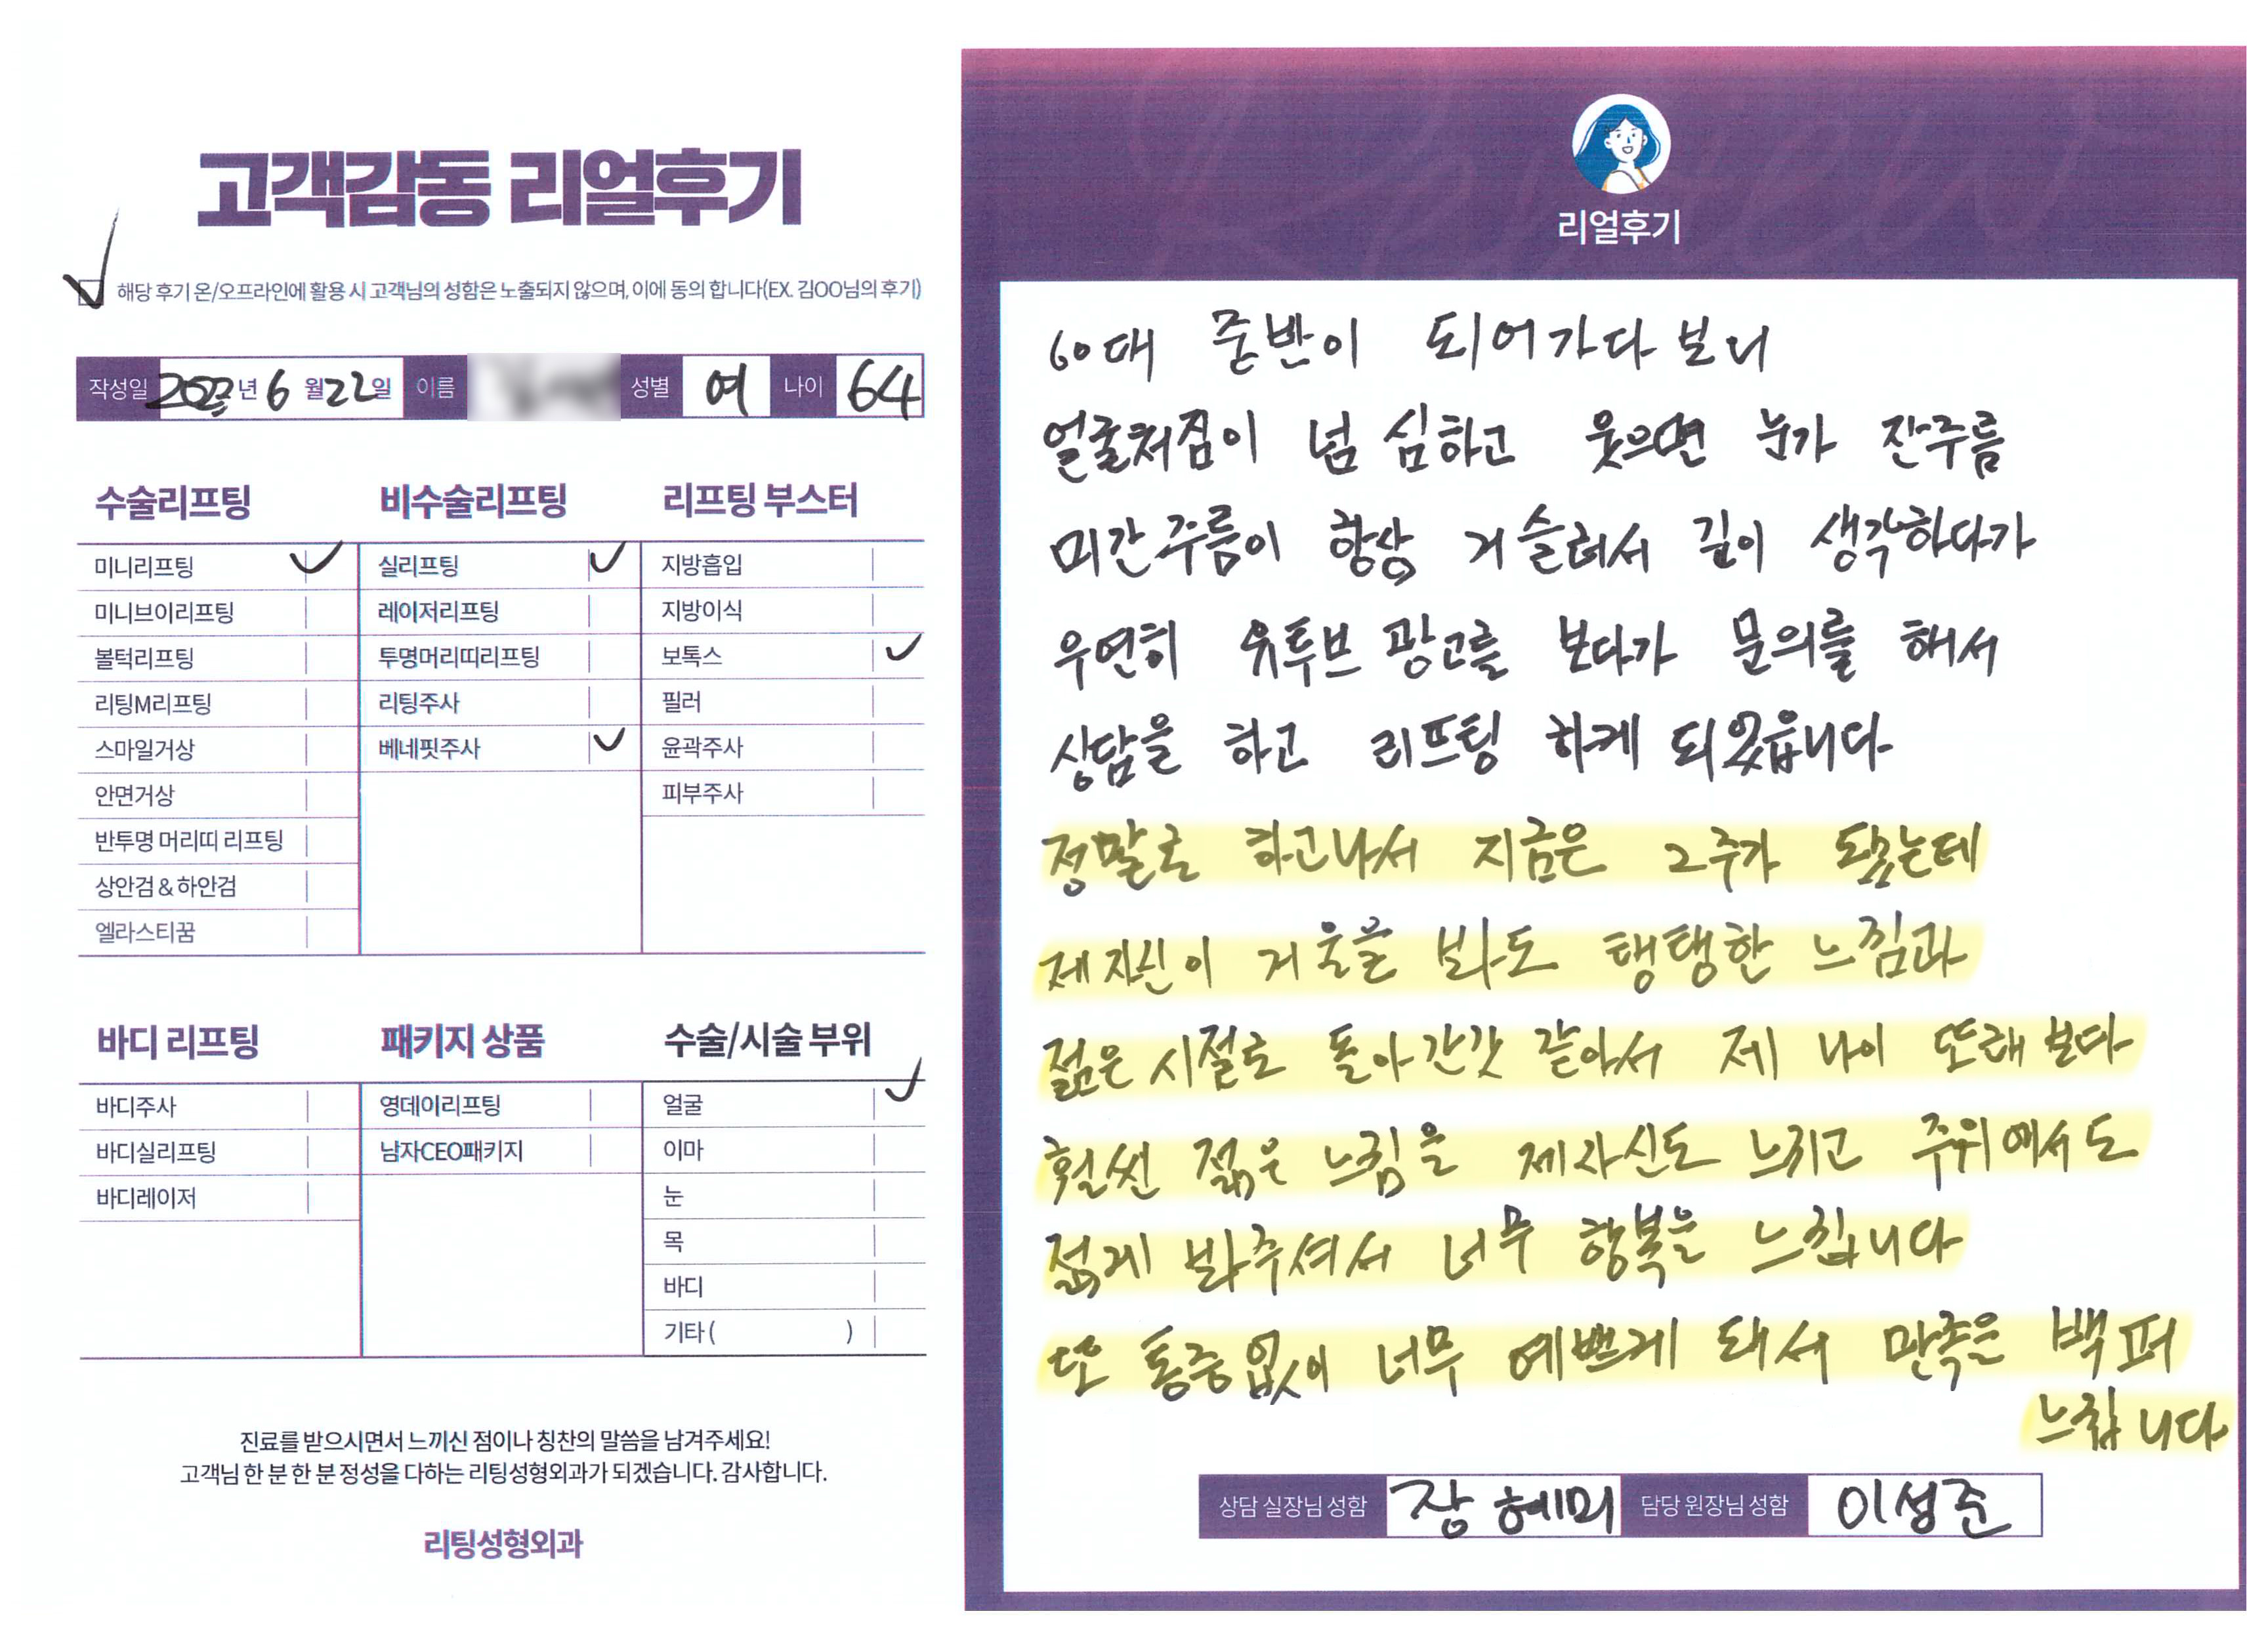 고객감동 리얼후기
해당 후기 온/오프라인에 활용 시 고객님의 성함은 노출되지 않으며, 이에 동의 합니다(EX. 김OO님의 후기)
작성일 2023년 6월 22일 이름 성별 여 나이 64
수술리프팅
미니리프팅
미니브이리프팅
볼턱리프팅
리팅M리프팅
스마일거상
안면거상
반투명 머리띠 리프팅
상안검 & 하안검
엘라스티꿈
비수술리프팅
실리프팅
레이저리프팅
투명머리띠리프팅
리팅주사
베네핏주사
리프팅 부스터
지방흡입
지방이식
보톡스
필러
윤곽주사
피부주사
바디 리프팅
바디주사
바디실리프팅
바디레이저
패키지 상품
영데이리프팅
남자CEO패키지
수술/시술 부위
얼굴
이마
눈
목
바디
기타 ( )
진료를 받으시면서 느끼신 점이나 칭찬의 말씀을 남겨주세요!
고객님 한 분 한 분 정성을 다하는 리팅성형외과가 되겠습니다. 감사합니다.
리팅성형외과
리얼후기
60대 중반이 되어가다 보니
얼굴처짐이 넘 심하고 웃으면 눈가 잔주름
미간주름이 항상 거슬려서 깊이 생각하다가
우연히 유투브 광고를 보다가 문의를 해서
상담을 하고 리프팅 하게 되었읍니다
정말로 하고나서 지금은 2주가 됐는데
제자신이 거울을 봐도 탱탱한 느낌과
젊은 시절로 돌아간갓 같아서 제 나이 또래 보다
훨씬 젊은 느낌을 제자신도 느끼고 주위에서도
젊게 봐주셔서 너무 행복을 느낍니다
또 통증없이 너무 예쁘게 돼서 만족은 백퍼
느낍니다
상담 실장님 성함 장혜미 담당 원장님 성함 이성준